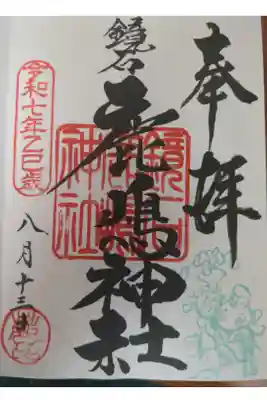 奉拝
鏡石
鹿嶋神社
鏡石
鹿嶋
神社
令和七年乙巳歳
八月十三日